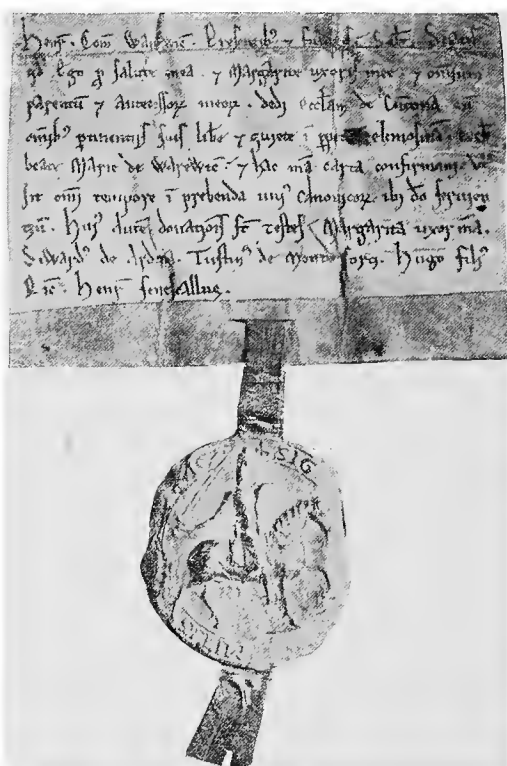 Henr̄. Com̄ Warewic̄. Presentib⁊ ⁊ futuris Salt̄. Sciatis
qd̄ Ego p̄ salute mea. ⁊ Margarite uxoris mee. ⁊ omnium
parentū ⁊ Antecessoꝝ meoꝝ. dedi Eccl̄am de Cūtona cū
omib⁊ ꝑtinentiis suis libe ⁊ quiete ī ꝑpet elemosinā. eccl̄e
beate Marie de Warewic̄. ⁊ hac mā carta confirmaui. ut
sit om̄i tempore ī prebenda uni⁊ canonicoꝝ ibi dō seruien
tiū. Hui⁊ Autē donationis st̄ testes. Margarita uxor mā.
Siward⁊ de Ardena. Turstin⁊ de Monteforti. Hugo fili⁊
Ric̄. Henr̄ senescallus.
SIG